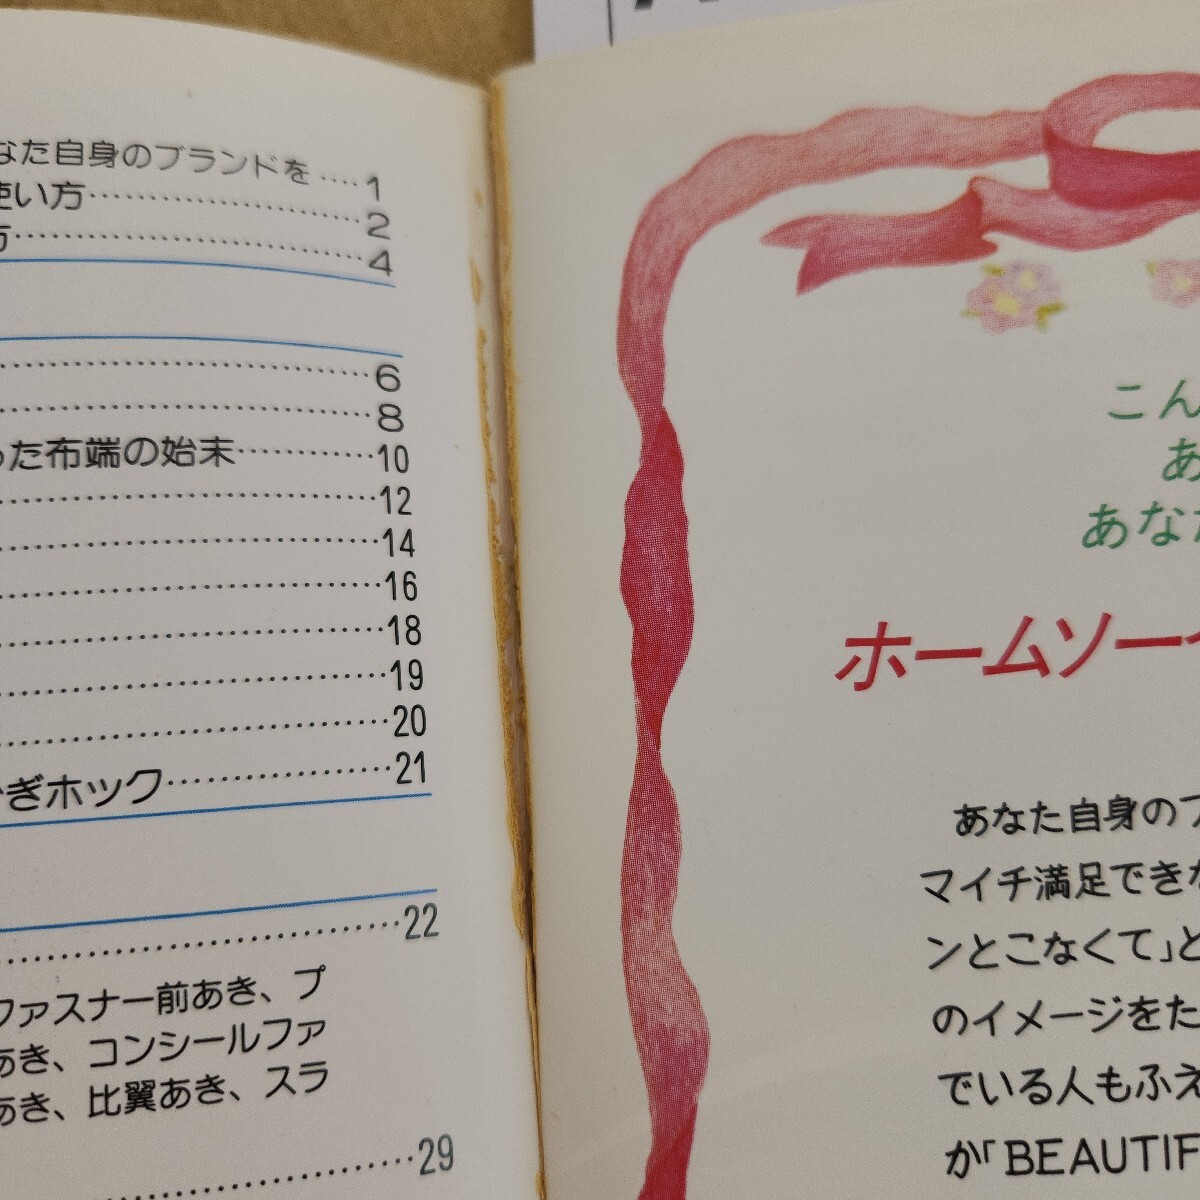 なた自身のブランドを‥‥1
使い方…………………2
方………………………4
…………………………6
…………………………8
った布端の始末…………10
…………………………12
…………………………14
…………………………16
…………………………18
…………………………19
…………………………20
かぎホック………………21
…………………………22
ファスナー前あき、プ
あき、コンシールファ
あき、比翼あき、スラ
…………………………29
こん
あ
あな
ホームソー
あなた自身のブ
マイチ満足できな
ンとこなくて」と
のイメージをた
でいる人もふえ
か「BEAUTIF